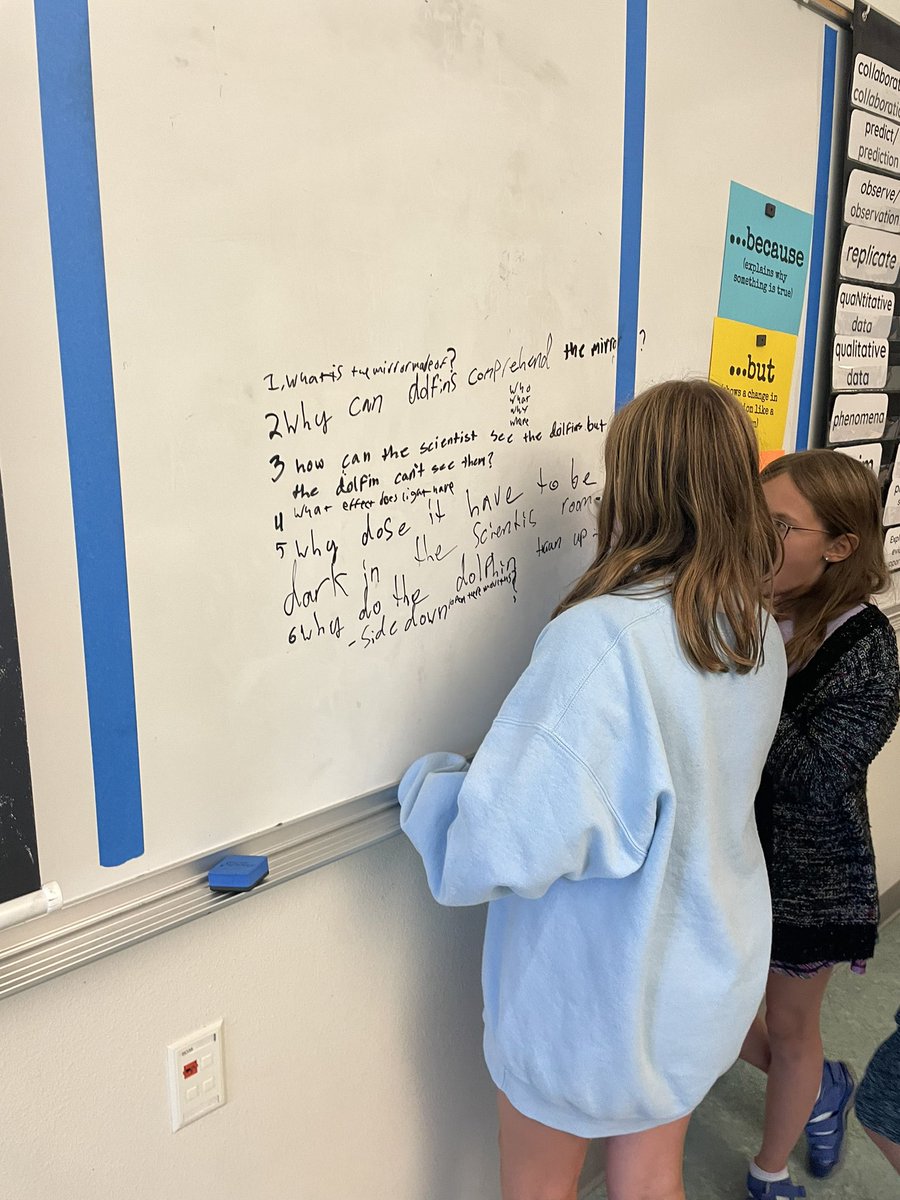 1. What is the mirror made of?
2 Why can dolfins comprehend the mirr ?
who
what
why
where
3 how can the scientist see the dolfins but
the dolfin can't see them?
4 What effect does light have
5 why dose it have to be
dark in the scientis room
6 why do the dolphin turn up
-side down ?
...because
(explains why
something is true)
...but
a change in
like a
collaborat
collaboratio
predict/
prediction
observe/
observation
replicate
quaNtitative
data
qualitative
data
phenomena